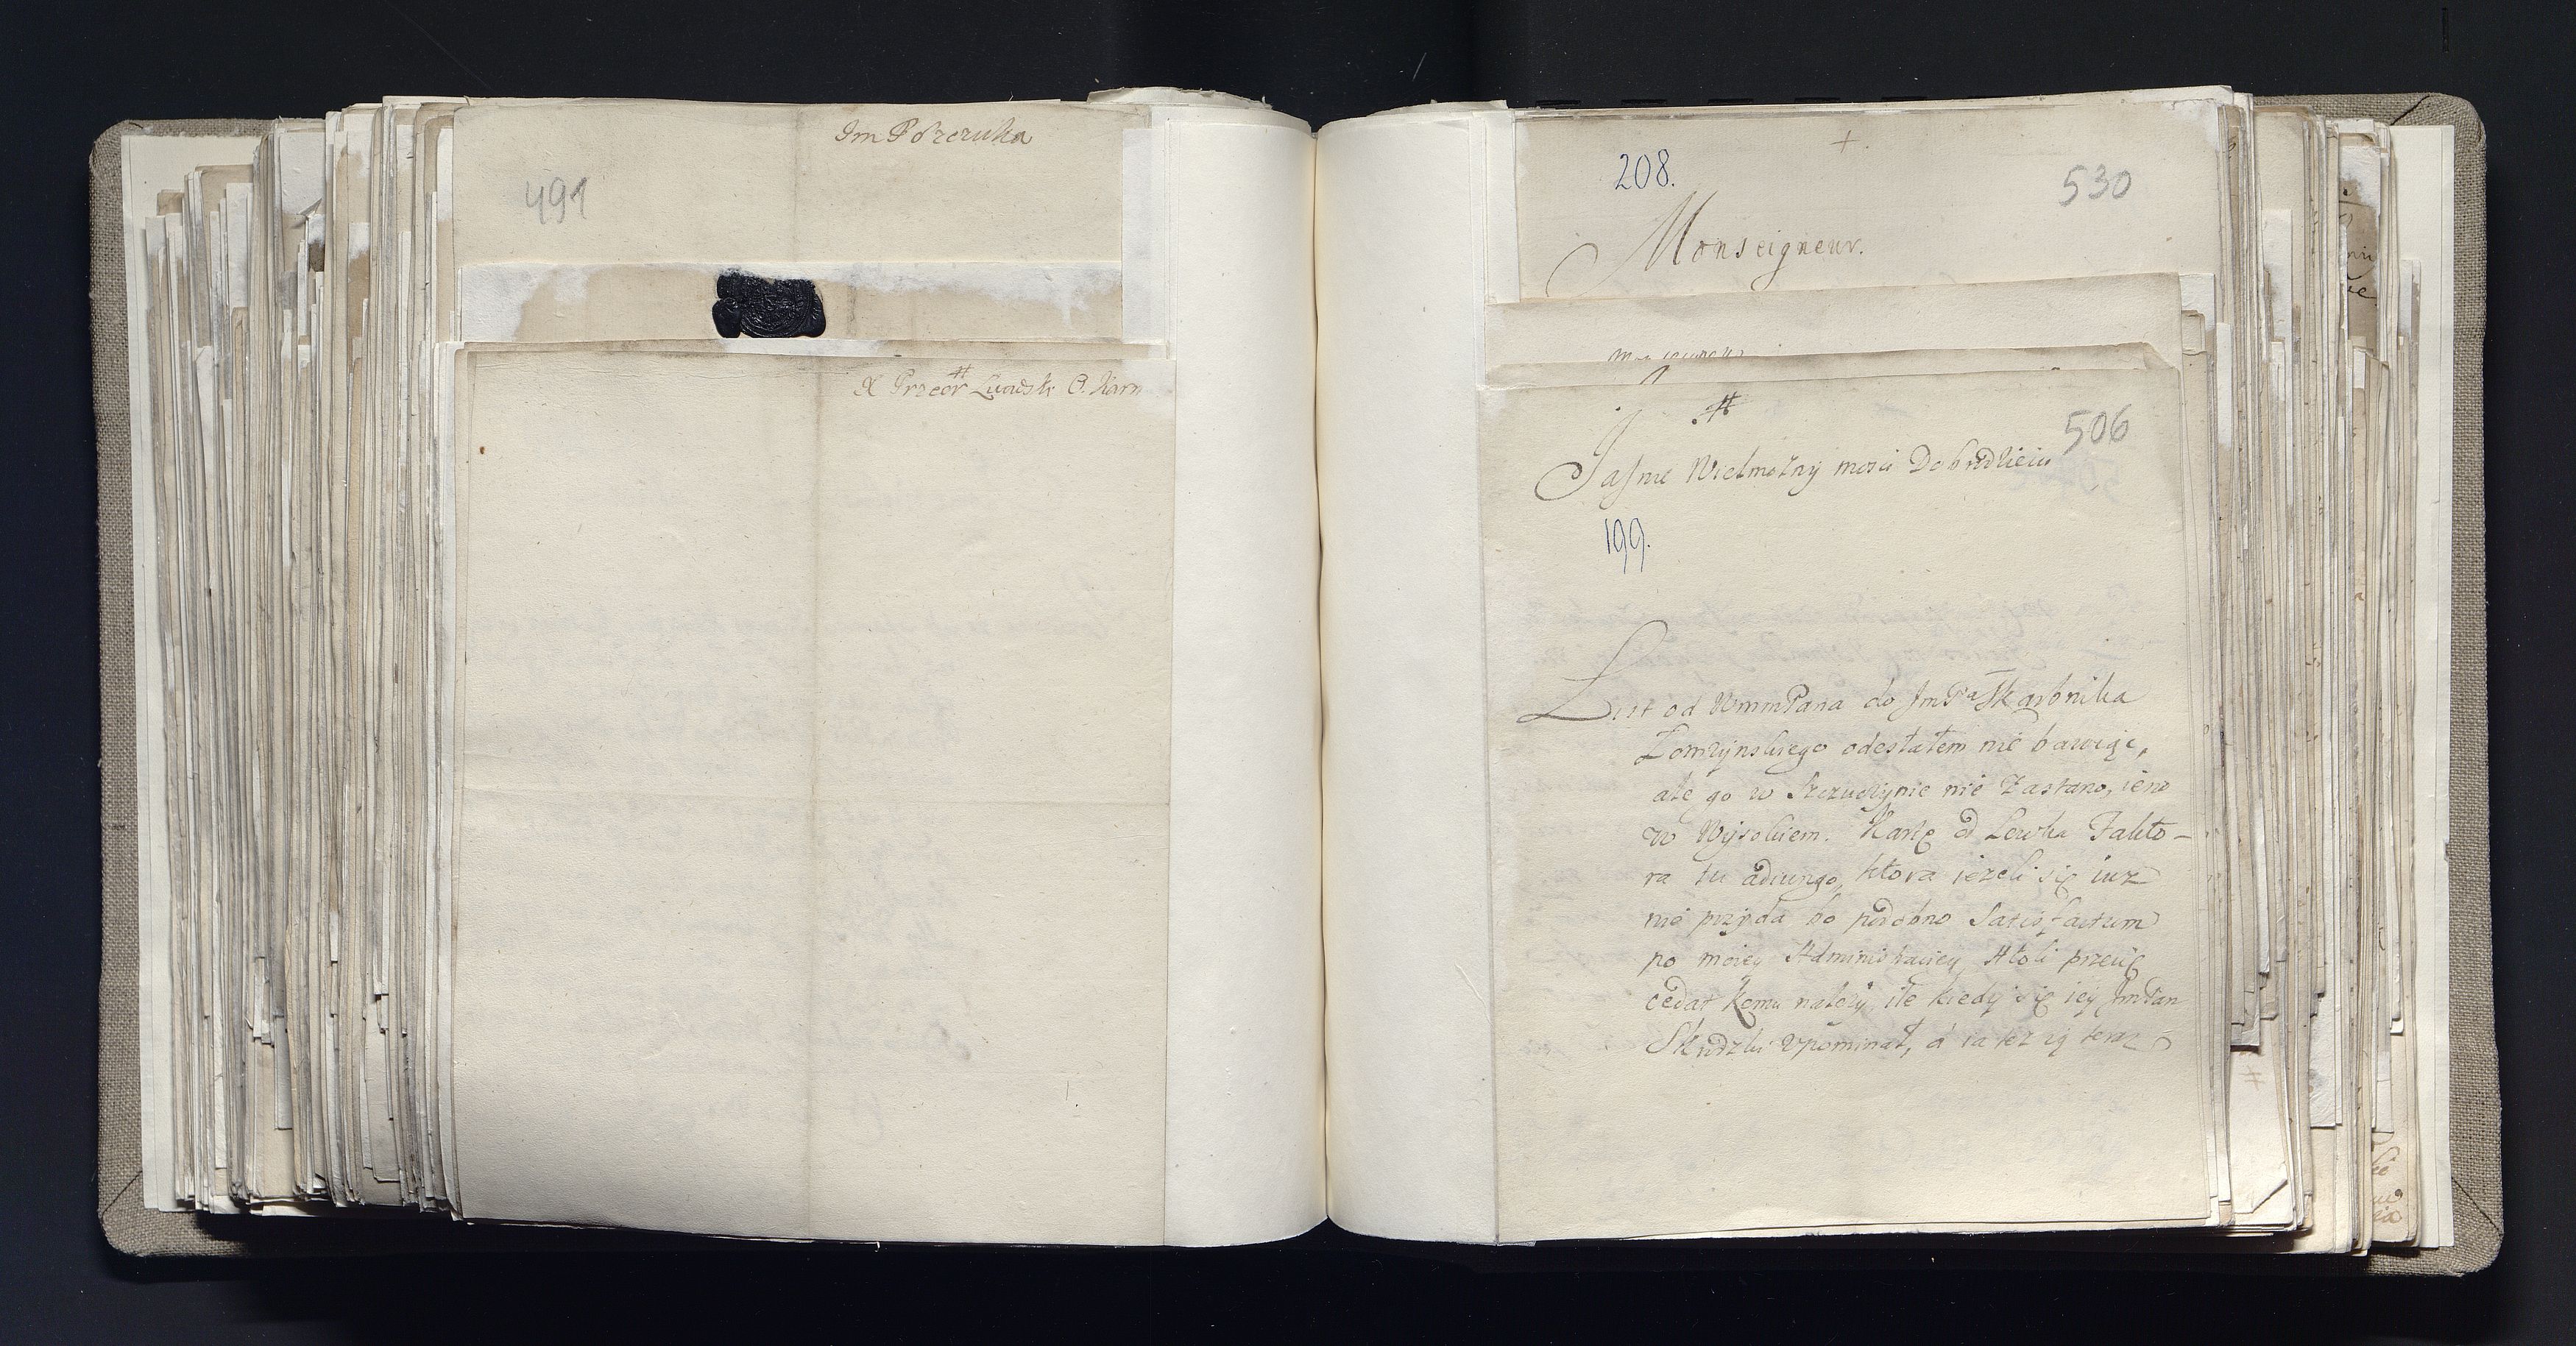 Im P Szczuka
491
X Przeor Lwowsk C. Karm
+.
208.
530
Monseigneur.
506
Jasnie Wielmożny mosci Dobrodzieiu
199.
List od WmmPana do JmPa Skarbnika
Łomzynskiego odesłałem nie bawiąc,
ale go w Szczuczynie nie zastano, ieno
w Wysokiem. Kartę od Lewka Fakto-
ra tu adiungo, ktora ieżeli się iuz
nie przyda bo podobno Satisfactum
po moiey Administraciey Atoli przecię
cedat komu nalezy, ile kiedy się iey JmPan
Skudzki upominał, a ia tez ią teraz